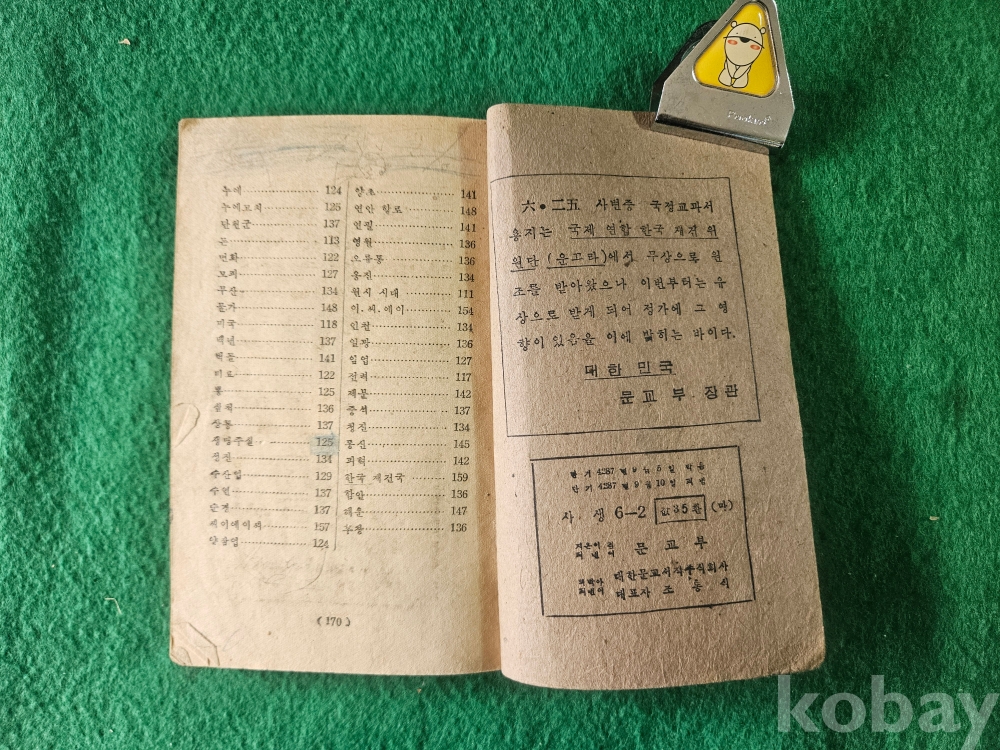 누에 124
누에고치 125
단원군 137
논 113
면화 122
모피 127
무산 134
물가 148
미국 118
백년 137
벽돌 141
비료 122
뽕 125
136
상동 137
125
성진 134
수산업 129
수원 137
순경 137
씨이에이씨 157
양잠업 124
양초 141
연안 항로 148
연필 141
영월 136
오류동 136
웅진 134
원시 시대 111
이.씨.에이 154
인천 134
일광 136
임업 127
전력 117
제분 142
중석 137
청진 134
통신 145
피혁 142
한국 재건국 159
함안 136
해운 147
후창 136
(170)
六•二五 사변중 국정교과서
용지는 국제 연합 한국 재건 위
원단 (운끄라)에서 무상으로 원
조를 받아왔으나 이번부터는 유
상으로 받게 되어 정가에 그 영
향이 있음을 이에 밝히는 바이다.
대한 민국
문교부 장관
단기 4287 년 9 월 5 일 박음
단기 4287 년 9 월 10 일 펴냄
사 생 6-2 값35환 (마)
지은이 문교부
대한문교서적주식회사
대표자 조 동 식
Fookus
kobay